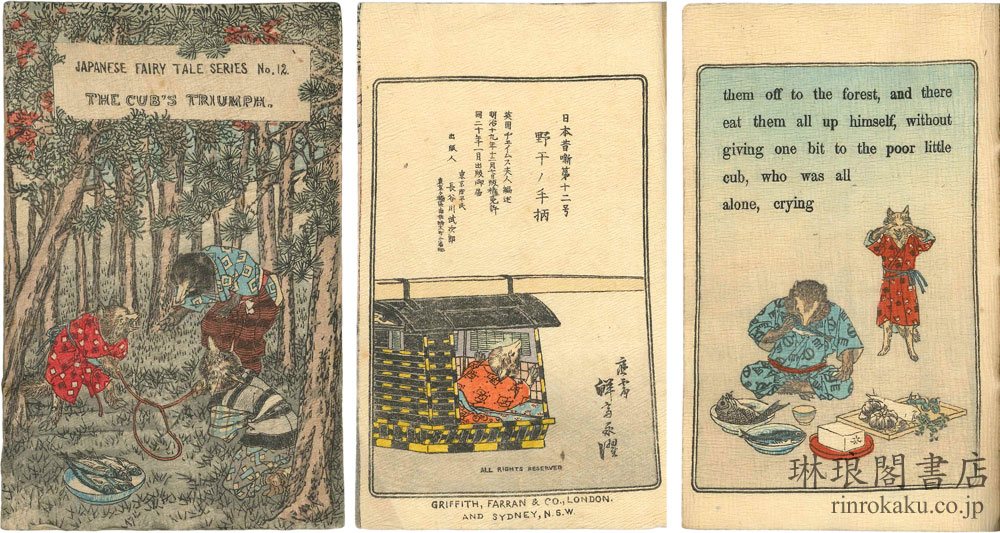 JAPANESE FAIRY TALE SERIES No. 12.
THE CUB'S TRIUMPH.
日本昔噺第十二号
野干ノ手柄
英国チェイムス夫人編述
明治十九年十二月七日版権免許
同二十年一月出版御届
出版人
東京府平民
長谷川武次郎
鮮斎永濯
ALL RIGHTS RESERVED
GRIFFITH, FARRAN & CO., LONDON.
AND SYDNEY, N.S.W.
them off to the forest, and there
eat them all up himself, without
giving one bit to the poor little
cub, who was all
alone, crying
琳琅閣書店
rinrokaku.co.jp